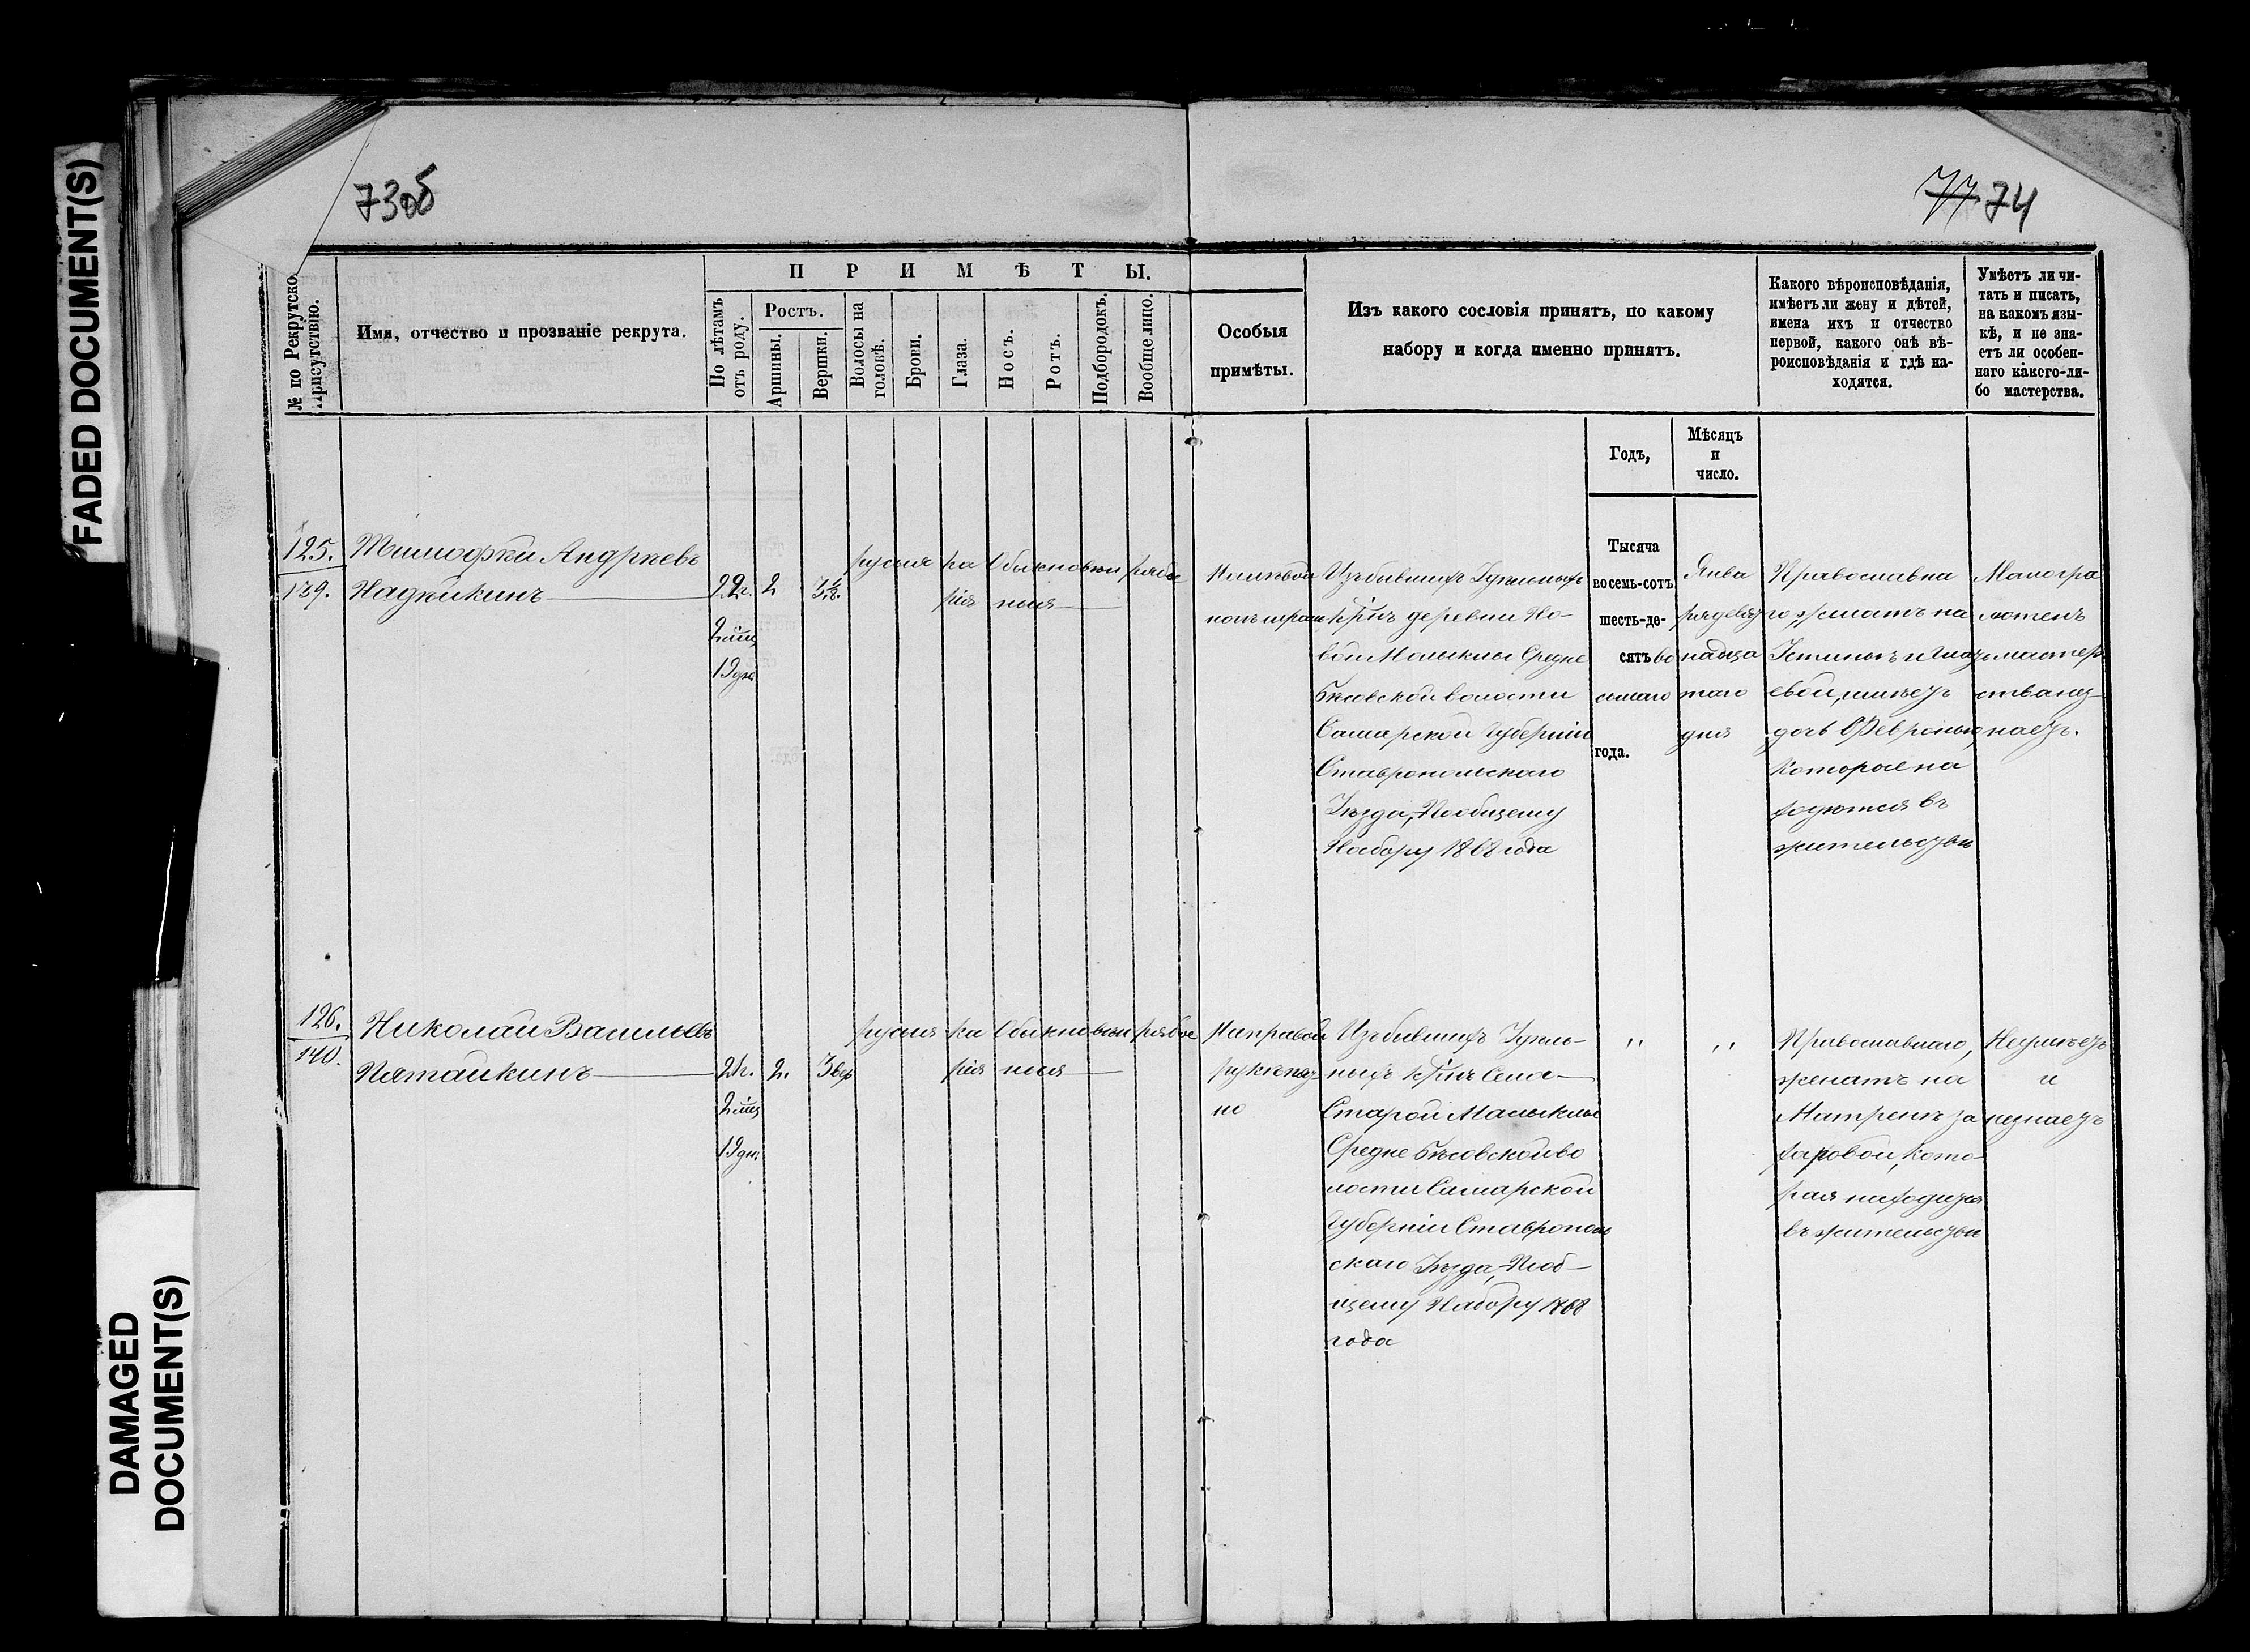 FADED DOCUMENT(S)
DAMAGED
DOCUMENT(S)
73об
77 74
№ по Рекрутско
Присутствію.
Имя, отчество и прозваніе рекрута.
ПРИМѢТЫ.
По лѣтамъ
отъ роду.
Ростъ.
Аршины.
Вершки.
Волосы на
головѣ.
Брови.
Глаза.
Носъ.
Ротъ.
Подбородокъ.
Вообще лицо.
Особыя
примѣты.
Изъ какого сословія принятъ, по какому
набору и когда именно принятъ.
Какого вѣроисповѣданія,
имѣетъ ли жену и дѣтей,
имена ихъ и отчество
первой, какого онѣ вѣ-
роисповѣданія и гдѣ на-
ходятся.
Умѣетъ ли чи-
тать и писать,
на какомъ язы-
кѣ, и не зна-
етъ ли особен-
наго какого-ли-
бо мастерства.
Годъ,
Мѣсяцъ
и
число.
125.
139.
Тимофей Андреевъ
Надѣйкинъ
22г.
2 мѣц
19 дн.
2
3 4/8.
русыя
ка
рія
Обыкновен
ныя
рябое
На лѣвой
Изъ бывшихъ Удѣльныхъ
крнъ деревни Но-
вой Малыклы Средне
Бѣсовской волости
Самарской Губерніи
Ставропольскаго
Уѣзда, По общему
Набору 1868 года
Тысяча
восемь-сотъ
шесть-де-
сятъ во
сьмаго
года.
Янва
ря девят
надца
таго
дня
Православна
го, женатъ на
евой, имѣетъ
дочь Февронью,
которые на
ходятся въ
жительствѣ
Малогра
мотенъ
мастер
ства нез-
наетъ.
126.
140.
Николай Васильевъ
Пятайкинъ
21г.
2 мѣц
19 дн.
2.
3 вер
русыя
ка
рія
Обыкновен
ныя
рябое
На правой
рукѣ пят-
но
Изъ бывшихъ Удѣль-
ныхъ крнъ Села
Старой Малыклы
Средне Бѣсовской во
лости Самарской
Губерніи Ставрополь
скаго Уѣзда, По об-
щему Набору 1868
года
,,
,,
Православнаго,
женатъ на
Матренѣ За
харовой, кото-
рая находится
въ жительствѣ
Неумѣетъ
и
незнаетъ